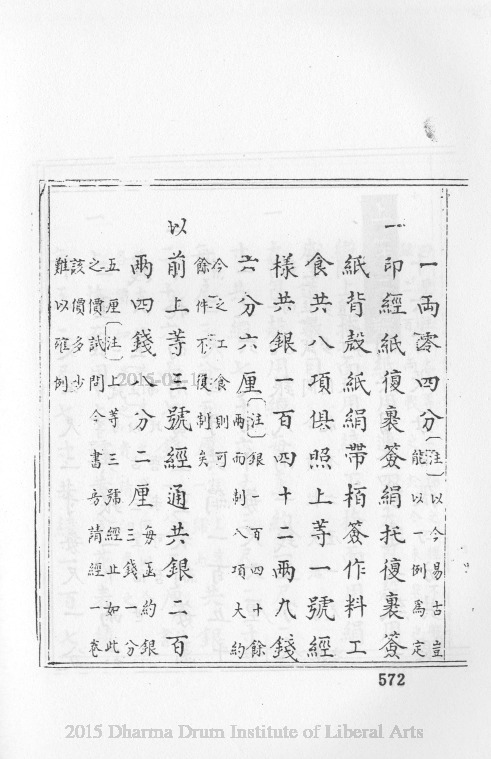 一兩零四分〔注〕以今易古豈
能以一例爲定
一印經紙復裹簽絹托復裹簽
紙背殼紙絹帶栢簽作料工
食共八項俱照上等一號經
樣共銀一百四十二兩九錢
六分六厘〔注〕銀一百四十餘
兩而制八項大約
今之工食則可
餘件不復制矣
以前上等三號經通共銀二百
兩四錢八分二厘每函約銀
三錢一分
五厘〔注〕上等三號經止如此
之價試問今書請經一卷
該價多少
難以確例
572
2015 Dharma Drum Institute of Liberal Arts